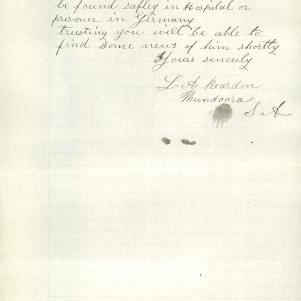 be found safley in Hospital or
prisoner in Germany
trusting you will be able to
find some news of him shortly
Yours sincerly
L. A. Reardon
Mundoora
S A